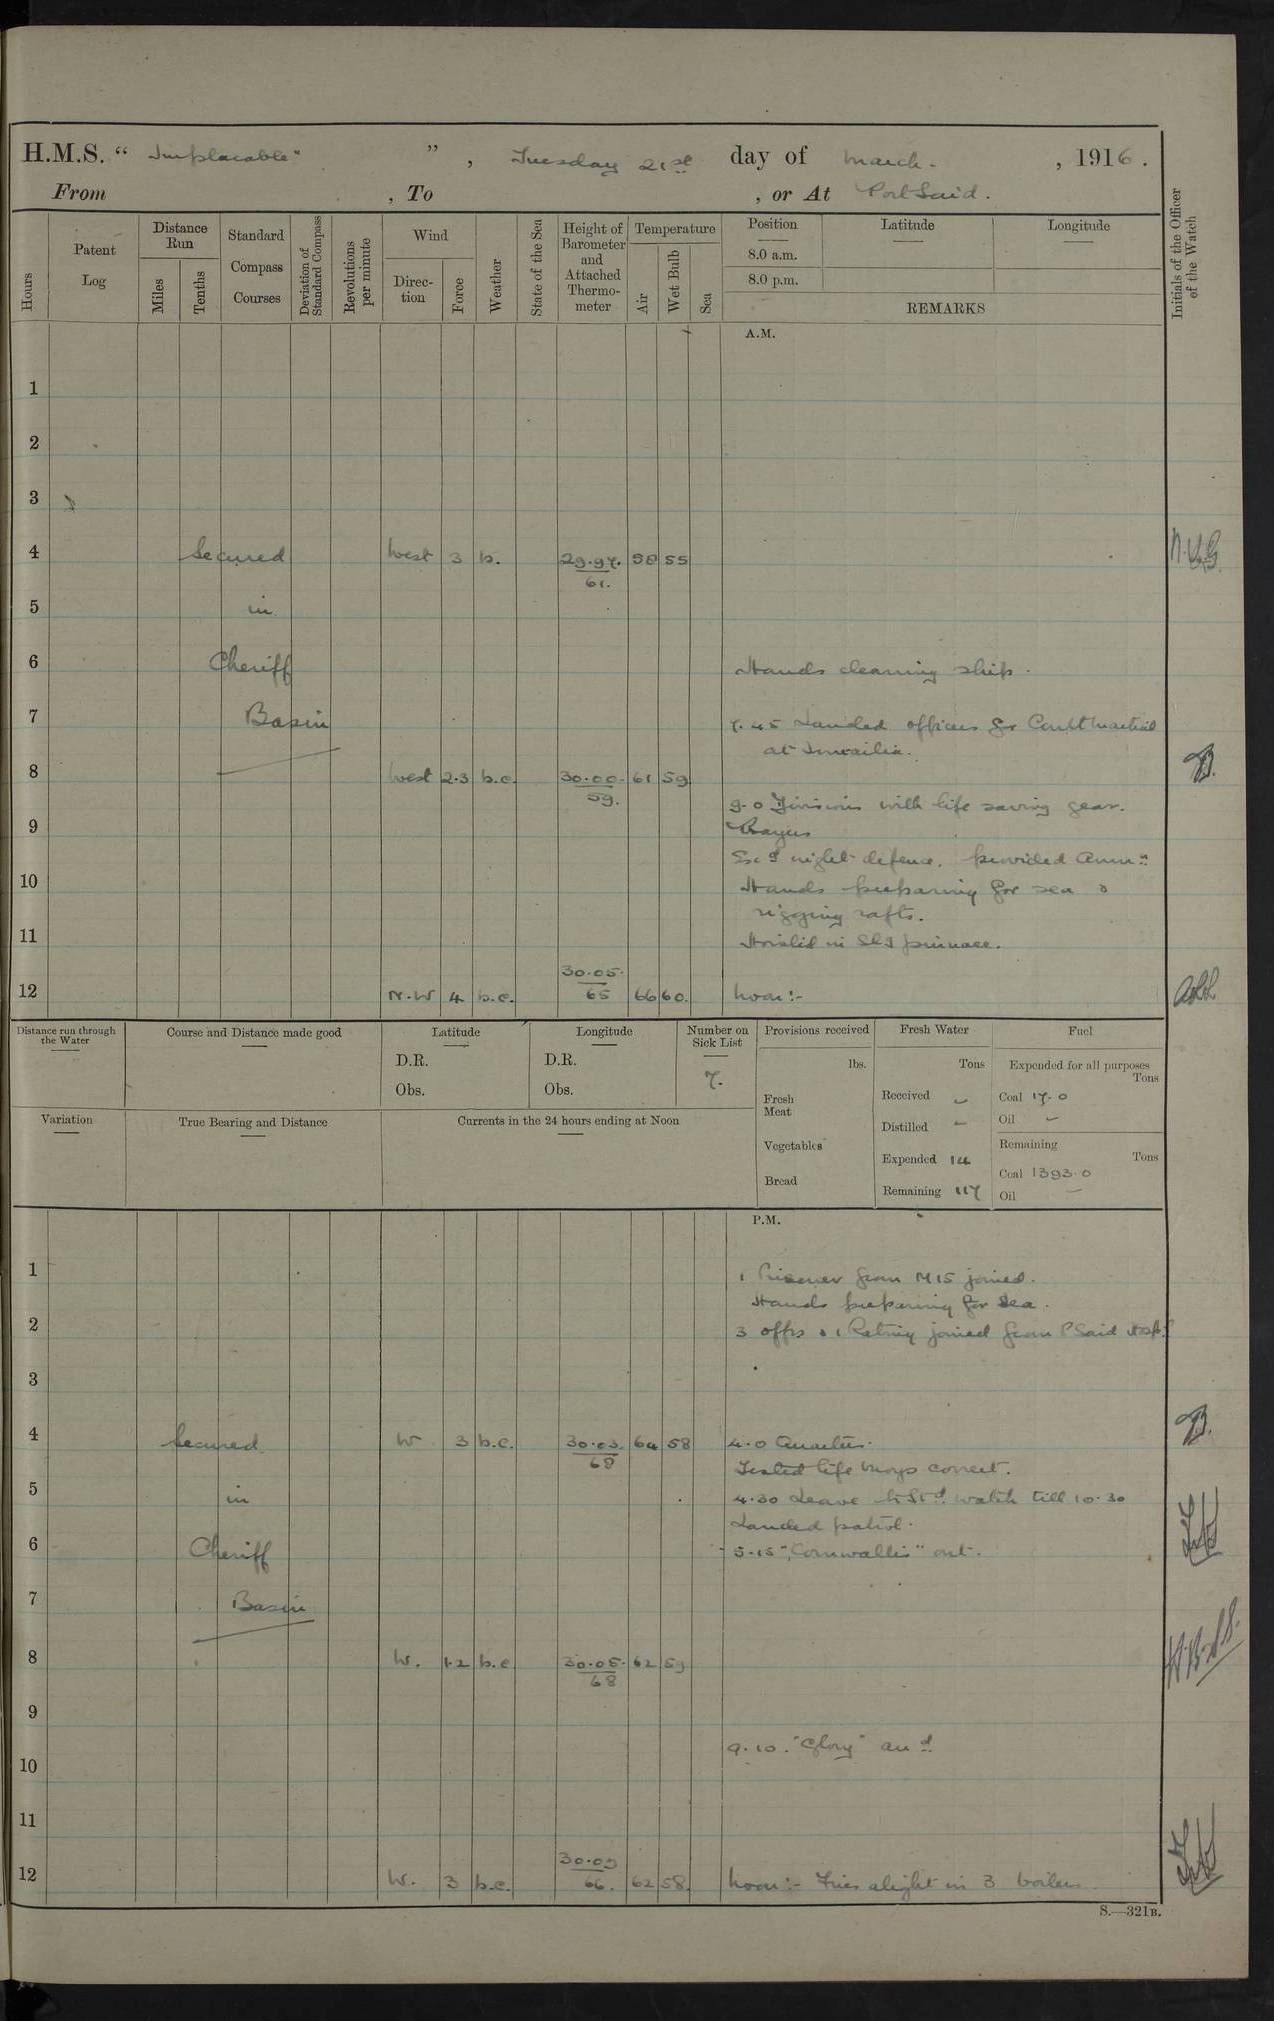 H.M.S. “ Implacable" ” , Tuesday 21st day of March. , 1916.
From , To , or At Port Said.
Hours
Patent Log
Distance Run
Miles
Tenths
Standard Compass Courses
Deviation of Standard Compass
Revolutions per minute
Wind
Direc-tion
Force
Weather
State of the Sea
Height of Barometer and Attached Thermo-meter
Temperature
Air
Wet Bulb
Sea
Position
8.0 a.m.
8.0 p.m.
Latitude
Longitude
REMARKS
Initials of the Officer of the Watch
A.M.
1
2
3
4 Secured West 3 b. 29.97. 58 55
61.
5 in
6 Cheriff Hands cleaning ship.
7 Basin 7.45 Landed officers for Court Martial
at Ismailia.
8 West 2.3 b.c. 30.00. 61 59
59.
9.0 Divisions with life saving gear.
9 Prayers
Exd night defence. provided Ammn
10 Hands preparing for sea &
rigging rafts.
11 Hoisted in Std pinnace.
30.05.
12 N.W 4 b.c. 65 66 60. Noon:-
Distance run through the Water
Course and Distance made good
Latitude
D.R.
Obs.
Longitude
D.R.
Obs.
Number on Sick List
7.
Provisions received
lbs.
Fresh Meat
Vegetables
Bread
Fresh Water
Tons
Received –
Distilled –
Expended 14
Remaining 117
Fuel
Expended for all purposes
Tons
Coal 17.0
Oil –
Remaining
Tons
Coal 1393.0
Oil –
Variation
True Bearing and Distance
Currents in the 24 hours ending at Noon
P.M.
1 1 Prisoner from M15 joined.
Hands preparing for Sea.
2 3 offrs & 1 Rating joined from P Said Hospl
3
4 Secured W 3 b.c. 30.03. 64 58 4.0 Quarters.
68
Tested life buoys correct.
5 in 4.30 Leave to Std watch till 10.30
Landed patrol.
6 Cheriff 5.15 "Cornwallis" out.
7 Basin
8 W. 1.2 b.c 30.05. 62 59
68
9
9.10. "Glory" arrd
10
11
30.05
12 W. 3 b.c. 66. 62 58. Noon:- Fires alight in 3 boilers
S.—321B.